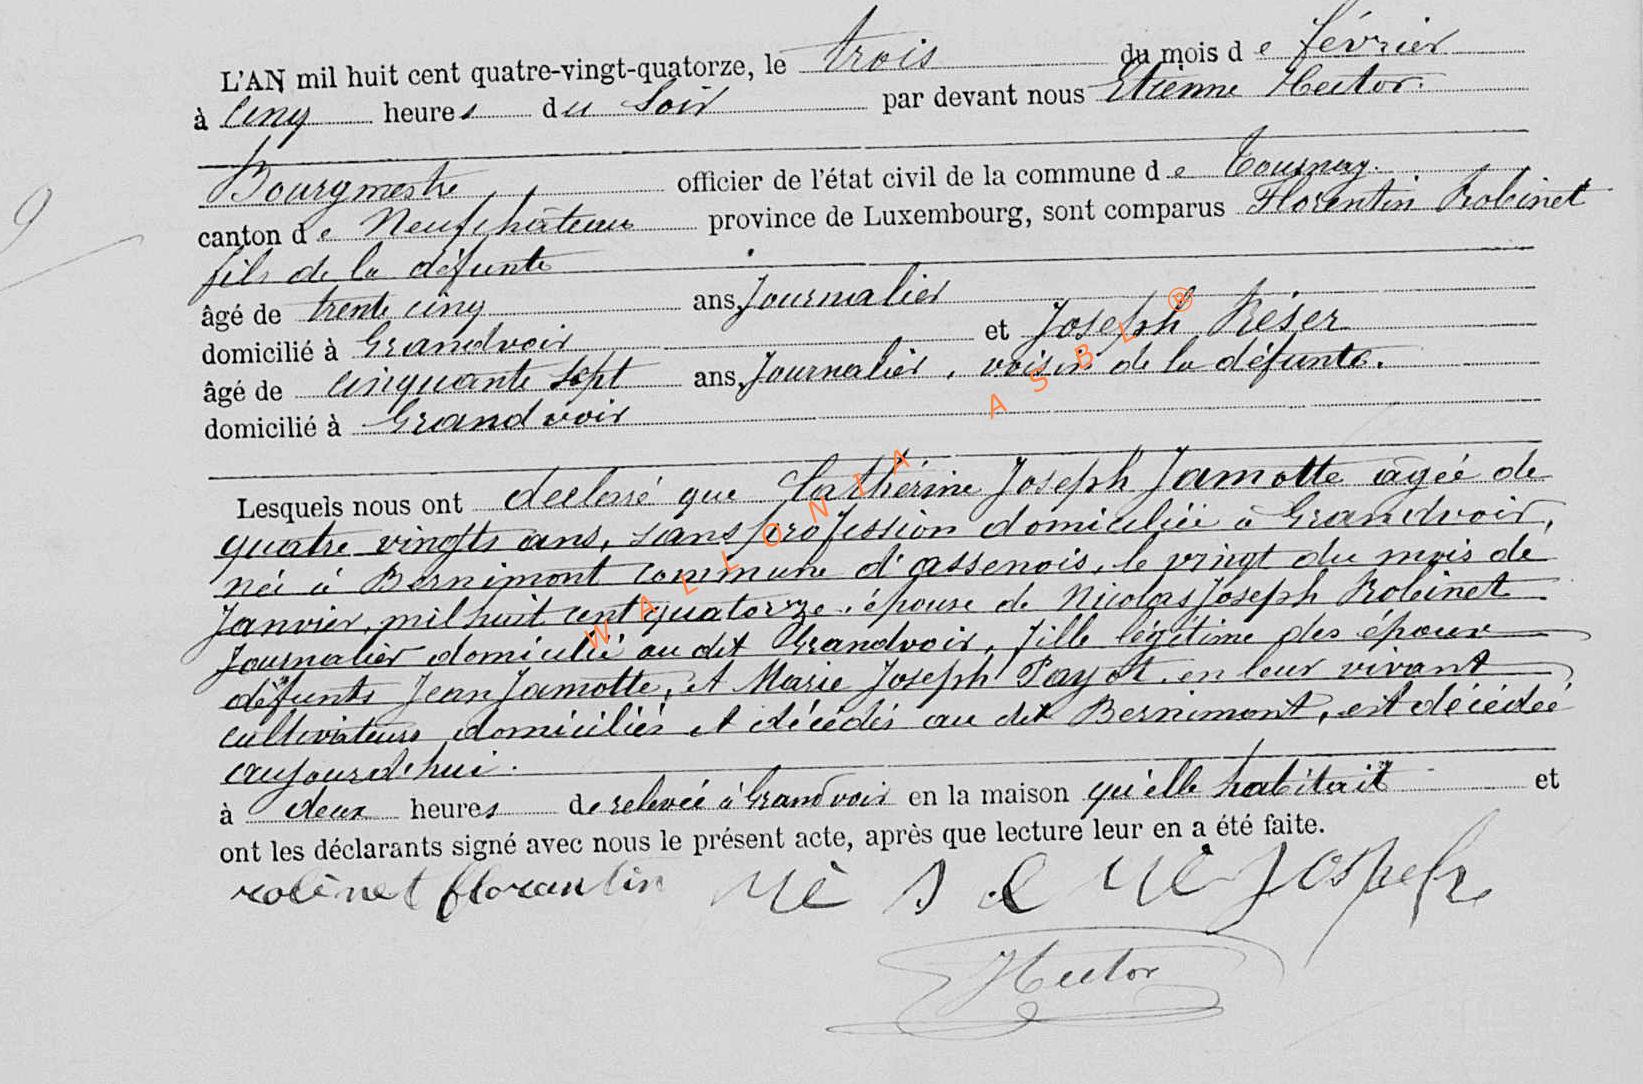 L'AN mil huit cent quatre-vingt-quatorze, le trois du mois de février
à cinq heures du soir par devant nous Etienne Hector.
Bourgmestre officier de l'état civil de la commune de Tournay.
canton de Neufchâteau province de Luxembourg, sont comparus Florentin Robinet
fils de la défunte
âgé de trente cinq ans, Journalier
domicilié à Grandvoir et Joseph Réser
âgé de cinquante sept ans, Journalier, voisin de la défunte.
domicilié à Grandvoir
Lesquels nous ont declaré que Cathérine Joseph Jamotte âgée de
quatre vingts ans, sans profession domiciliée à Grandvoir,
née à Bernimont commune d'assenois, le vingt du mois de
Janvier, mil huit cent quatorze, épouse de Nicolas Joseph Robinet
Journalier domicilié au dit Grandvoir, fille légitime des époux
défunts Jean Jamotte, et Marie Joseph Payot, en leur vivant
cultivateurs domiciliés et décédés au dit Bernimont, est décédée
aujourd'hui.
à deux heures de relevée à Grandvoir en la maison qu'elle habitait et
ont les déclarants signé avec nous le présent acte, après que lecture leur en a été faite.
robinet florantin
Hector
WALLONIA ASBL ®
9